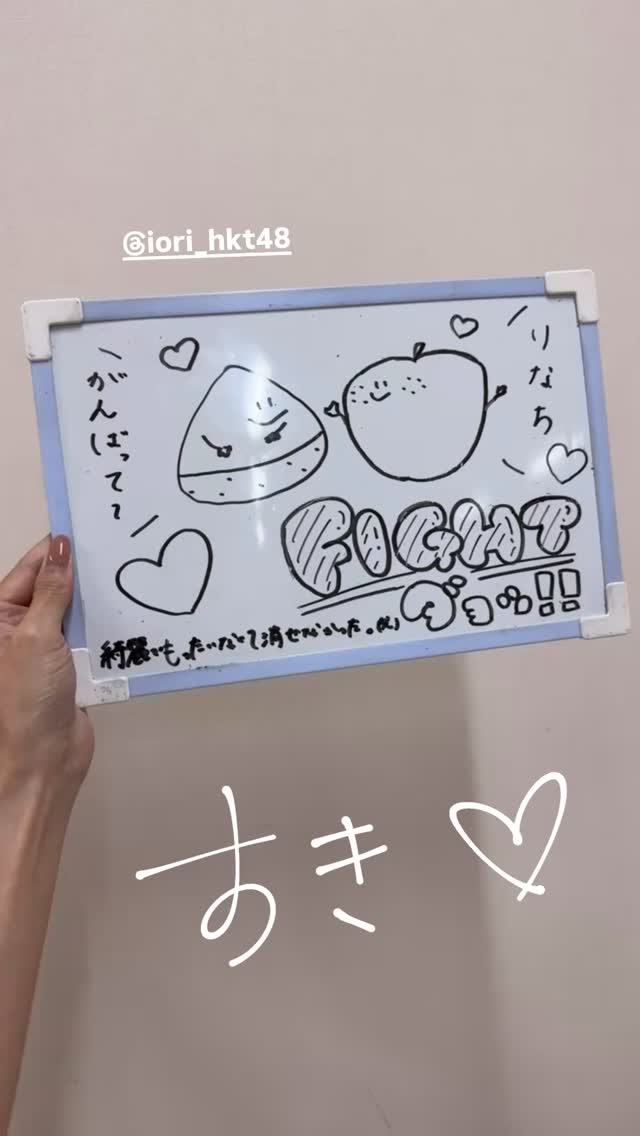 @iori_hkt48
りなち
がんばってー
FIGHT
綺麗でもったいなくて消せなかった。
すき